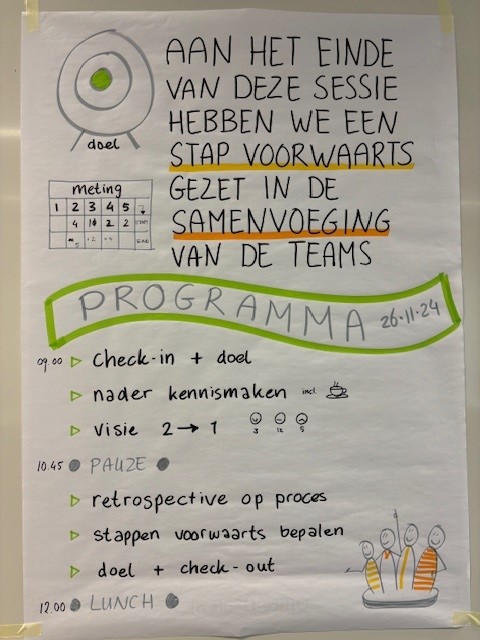 AAN HET EINDE
VAN DEZE SESSIE
HEBBEN WE EEN
STAP VOORWAARTS
GEZET IN DE
SAMENVOEGING
VAN DE TEAMS
doel
meting
1 2 3 4 5
4 10 2 2 START
EIND
PROGRAMMA 26·11·24
09.00 Check-in + doel
nader kennismaken incl.
visie 2 → 1
3 12 5
10.45 PAUZE
retrospective op proces
stappen voorwaarts bepalen
doel + check-out
12.00 LUNCH